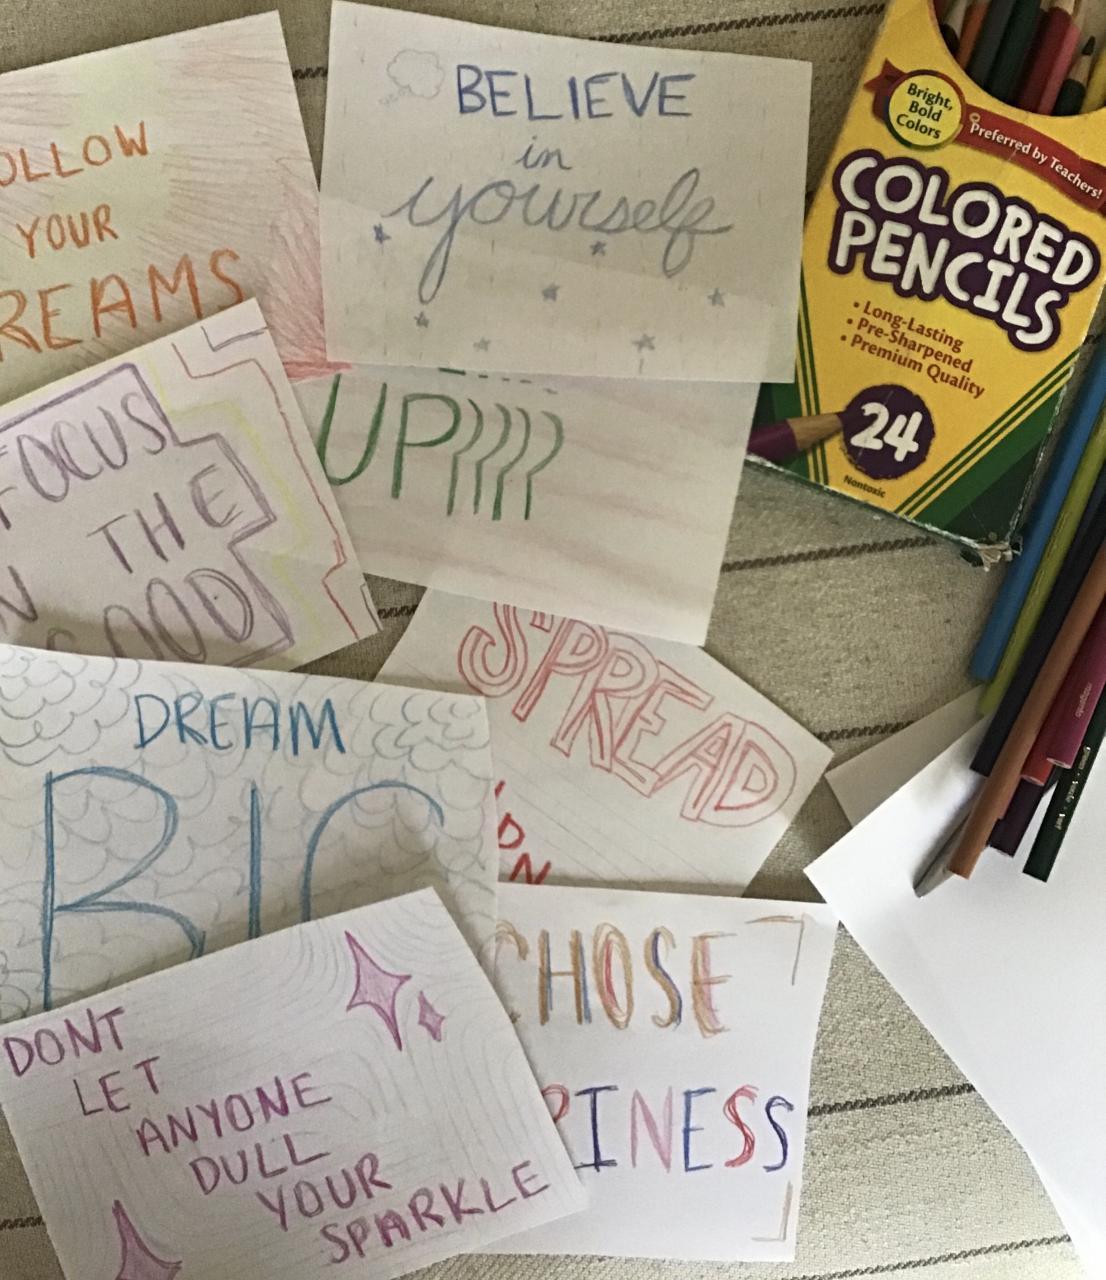 OLLOW
YOUR
REAMS
BELIEVE
in
yourself
Bright,
Bold
Colors
Preferred by Teachers!
COLORED
PENCILS
• Long-Lasting
• Pre-Sharpened
• Premium Quality
24
Nontoxic
UP!!!!
FOCUS
THE
OOD
SPREAD
DREAM
BIG
DONT
LET
ANYONE
DULL
YOUR
SPARKLE
CHOSE
PINESS